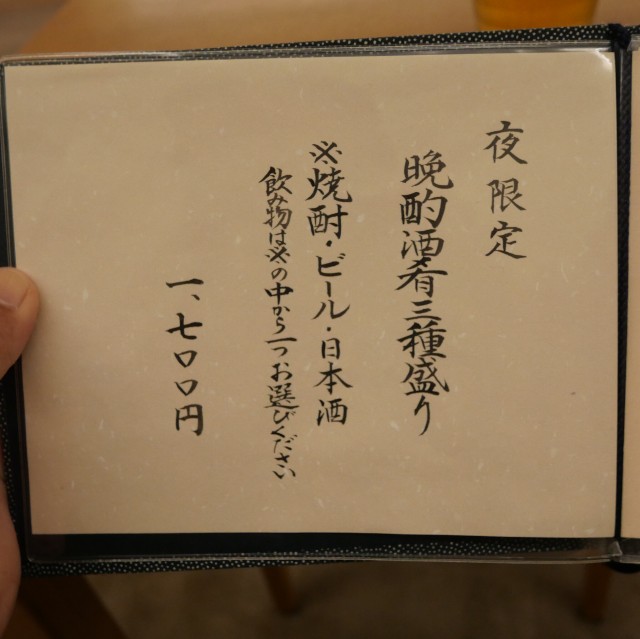 夜限定
晩酌酒肴三種盛り
※焼酎・ビール・日本酒
飲み物は※の中から一つお選びください
一、七〇〇円